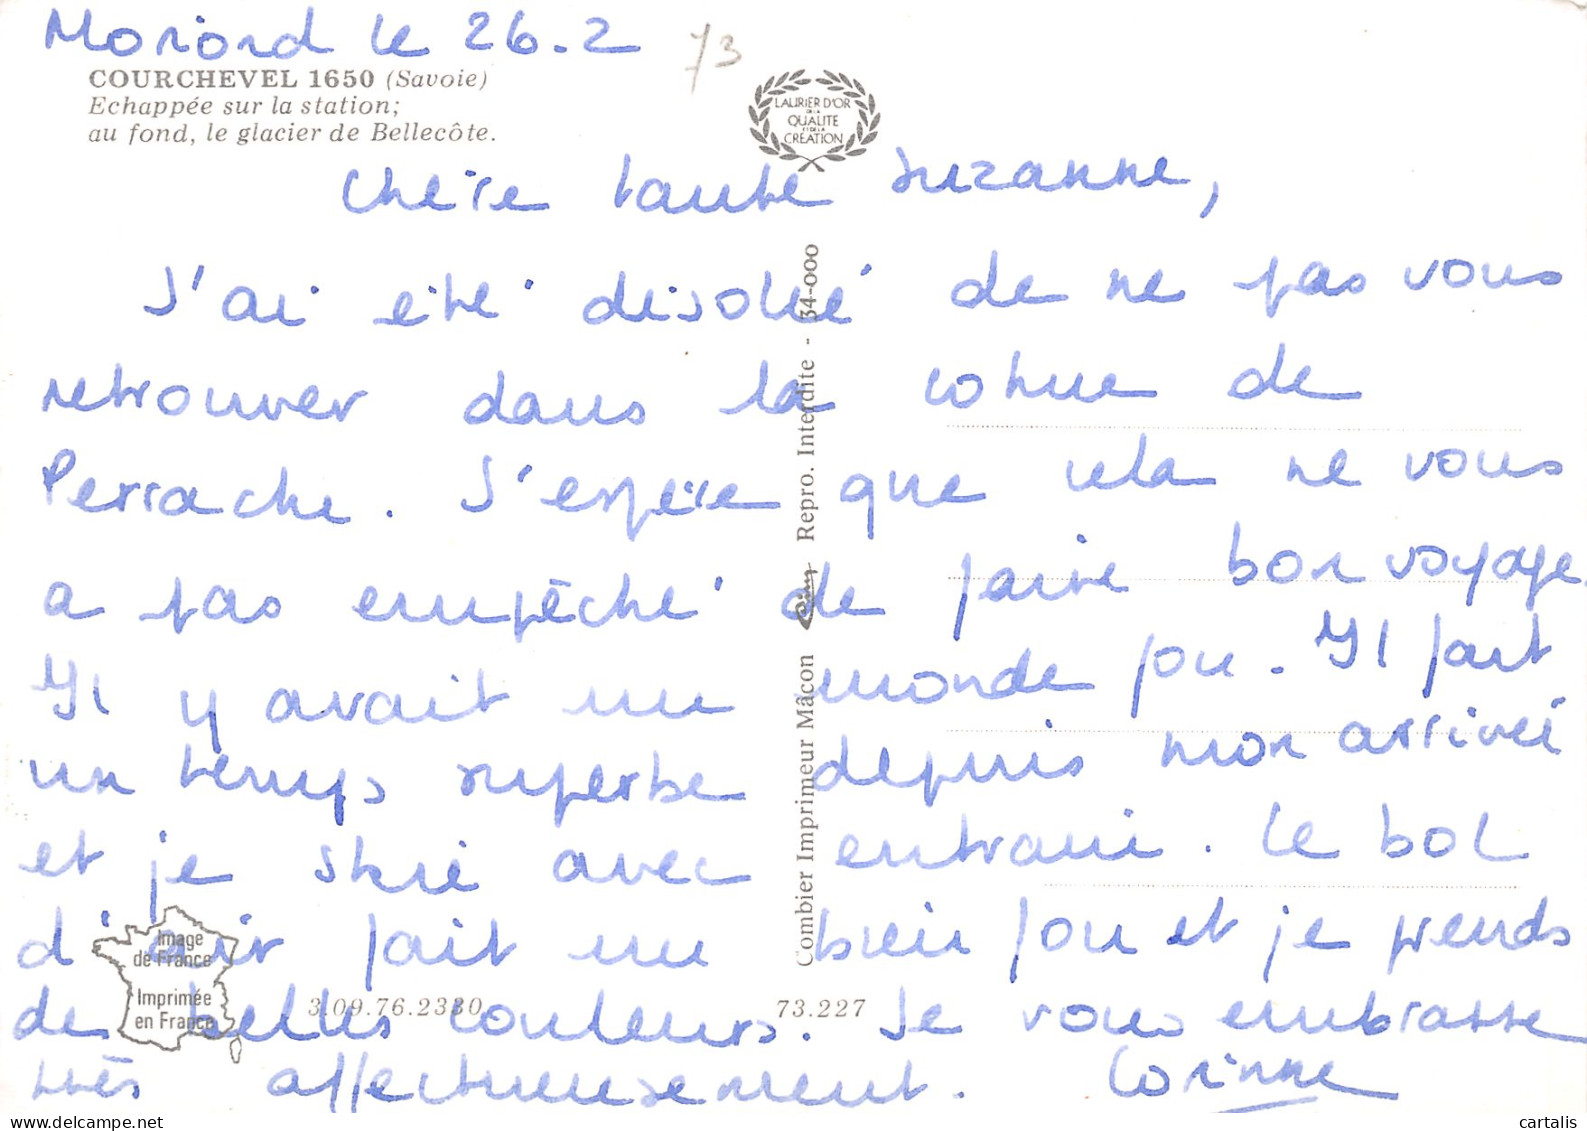 Moriond le 26-2
73
COURCHEVEL 1650 (Savoie)
Echappée sur la station;
au fond, le glacier de Bellecôte.
LAURIER D'OR
DE LA
QUALITE
ET DE LA
CRÉATION
Chère tante Suzanne,
J'ai été désolé de ne pas vous
retrouver dans la cohue de
Perrache. J'espère que cela ne vous
a pas empêché de faire bon voyage.
Il y avait un monde fou. Il fait
un temps superbe depuis mon arrivée
et je skie avec entrain. Le bol
d'air fait un bien fou et je prends
de belles couleurs. Je vous embrasse
très affectueusement. Corinne
Combier Imprimeur Mâcon Cim Repro. Interdite - 34-000
Image
de France
Imprimée
en France
3.09.76.2330
73.227
cartalis